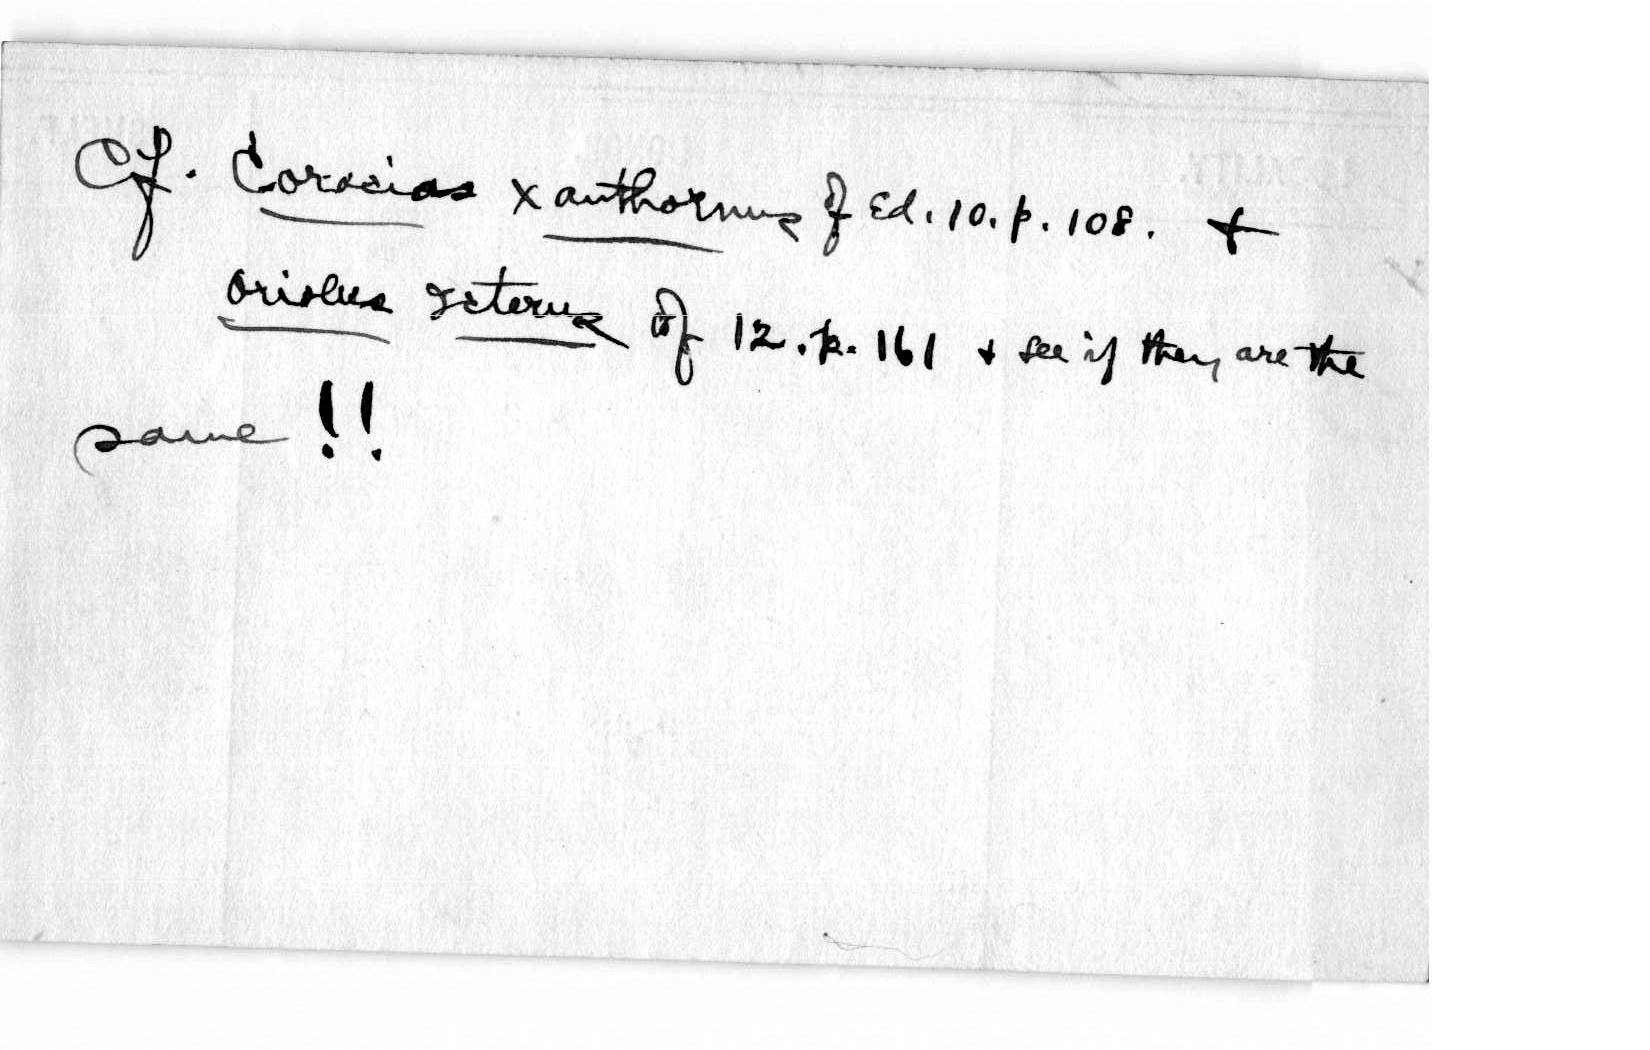 Cf. Coracias xanthornus of Ed. 10. p. 108. +
Oriolus Icterus of 12. p. 161 + see if they are the
same !!